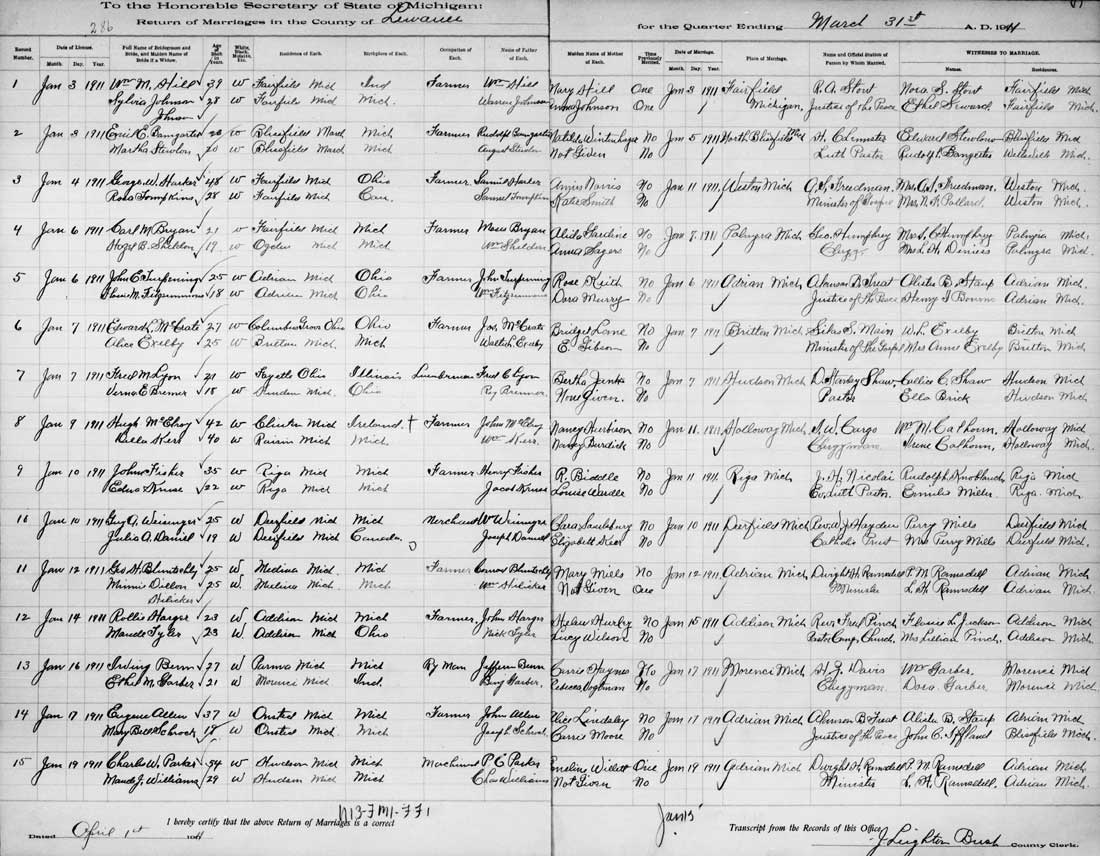 To the Honorable Secretary of State of Michigan:
286
Return of Marriages in the County of Lenawee
for the Quarter Ending March 31st A. D. 1911
Record Number. Date of License. Month. Day. Year Full Name of Bridegroom and Bride, and Maiden Name of Bride if a Widow. Age of Each in Years. White, Black, Mulatto, Etc. Residence of Each. Birthplace of Each. Occupation of Each. Name of Father of Each. Maiden Name of Mother of Each. Time Previously Married. Date of Marriage. Month. Day. Year Place of Marriage. Name and Official Station of Person by Whom Married. WITNESSES TO MARRIAGE. Names. Residences.
1 Jan 3 1911 Wm M. Hill 39 W Fairfield Mich Ind Farmer Wm Hill Mary Hill One Jan 3 1911 Fairfield R. A. Stout Nora S. Stout Fairfield Mich
Sylvia Johnson 28 W Fairfield Mich Mich. Warren Johnson Johnson One Michigan Justice of the Peace Ethel Seward Fairfield Mich.
Johnson
2 Jan 3 1911 Emil C. Bamgartes W Blissfield Mich Farmer Rudolph No Jan 5 1911 North Blissfield Edward Blissfield Mich
Martha 20 W Blissfield Mich August Not Given No Luth Pastor Rudolph Mich.
3 Jan 4 1911 George W. Harker 48 W Fairfield Mich Ohio Farmer Samuel Harker Norris No Jan 11 1911 Weston Mich Freedman. Mrs. Freedman. Weston Mich.
Rosa Tompkins 28 W Fairfield Mich Can. Samuel Tompkins Katie Smith No Minister of Gospel Mrs. Pollard. Weston Mich.
4 Jan 6 1911 Carl M. Bryan 21 W Fairfield Mich Mich Farmer Moses Bryan No Jan 7 1911 Palmyra Mich Geo. Humphrey Humphrey Palmyra Mich.
Hazel B. Sheldon 19 W Ogden Mich Mich. Wm Sheldon Anna Sayers No Clergy Palmyra Mich
5 Jan 6 1911 John C. Turpening 25 W Adrian Mich Ohio Farmer John Turpening Rose Keith No Jan 6 1911 Adrian Mich Alanson B. Treat Alista B. Stauf Adrian Mich.
18 W Adrian Mich Ohio Dora Murry No Justice of the Peace Henry Bourne Adrian Mich.
6 Jan 7 1911 27 W Columbus Grove Ohio Ohio Farmer Bridget Lane No Jan 7 1911 Britton Mich Silas S. Main W. L. Exelby Britton Mich
Alice Exelby 25 W Britton Mich Mich E. Gibson No Minister of the Gospel Mrs Anne Exelby Britton Mich
7 Jan 7 1911 Fred M. Lyon 21 W Fayette Ohio Illinois Fred C Lyon Bertha Jenks No Jan 7 1911 Hudson Mich D. Stanley Shaw, Callie C. Shaw Hudson Mich
Verna E Bremer 18 W Hudson Mich Ohio Bremer None Given. No Pastor Ella Brick Hudson Mich
8 Jan 9 1911 Hugh McElroy 42 W Clinton Mich Ireland. Farmer John McElroy Nancy No Jan 11 1911 Holloway Mich Cargo Wm M. Calhoun, Holloway Mich
Della Kerr 40 W Raisin Mich Mich. Wm Kerr. Nancy Burdick No Clergyman. Irene Calhoun, Holloway Mich.
9 Jan 10 1911 John Fisher 35 W Riga Mich Mich Farmer Henry Fisher R. Biddle No Jan 11 1911 Riga Mich J. H. Nicolai Rudolph Riga Mich
Kruse 22 W Riga Mich Mich Jacob Kruse Louise No Ev. Luth Pastor. Riga. Mich.
10 Jan 10 1911 Guy A. 25 W Deerfield Mich Mich Merchant No Jan 10 1911 Deerfield Mich Hayden Perry Mills Deerfield Mich
Julia A. Daniel 19 W Deerfield Mich Canada. Joseph Daniel Elizabeth No Catholic Priest Mrs Perry Mills Deerfield Mich.
11 Jan 12 1911 Geo. H. Bluntschly 25 W Medina Mich. Mich Farmer Conrad Bluntschly Mary Mills No Jan 12 1911 Adrian Mich Dwight H. Ramsdell P. M. Ramsdell Adrian Mich
Minnie Dillon 25 W Medina Mich Mich Wm Hilicker Not Given One Minister L. H. Ramsdell. Adrian Mich.
Hilicker
12 Jan 14 1911 Rollie Harger 23 W Addison Mich Mich Farmer John Harger Helen Hurley No Jan 15 1911 Addison Mich Rev. Fred Pinch Jackson Addison Mich
Maude Tyler 23 W Addison Mich Ohio Nick Tyler Lucy Wilson No Pastor Cong. Church. Mrs Lillian Pinch. Addison Mich
13 Jan 16 1911 Irving Bunn 27 W Parma Mich Mich Ry Man Bunn Carrie Haynes No Jan 17 1911 Morenci Mich H. J. Davis Wm Garber. Morenci Mich
Ethel M. Garber 21 W Morenci Mich Ind. Benj Garber. Rebecca No Clergyman. Dora Garber Morenci Mich.
14 Jan 17 1911 Eugene Allen 37 W Onsted Mich Mich Farmer John Allen Alice Lindsley No Jan 17 1911 Adrian Mich Alanson B Treat Alista B. Stauf Adrian Mich
Mary Bell Schrock 18 W Onsted Mich. Mich Joseph Schrock Carrie Moore No Justice of the Peace John C. Iffland Blissfield Mich.
15 Jan 19 1911 Charles W. Parker 54 W Hudson Mich Mich Merchant P. C. Parker Emeline Willett One Jan 19 1911 Adrian Mich Dwight H. Ramsdell P. M. Ramsdell Adrian Mich
Maude J. Williams 29 W Hudson Mich Mich Chas Williams Not Given No Minister L. H. Ramsdell. Adrian Mich.
M13-F M1-FF1
I hereby certify that the above Return of Marriages is a correct Transcript from the Records of this Office.
Jan 15
Dated April 1st 1911
J Leighton Bush County Clerk.